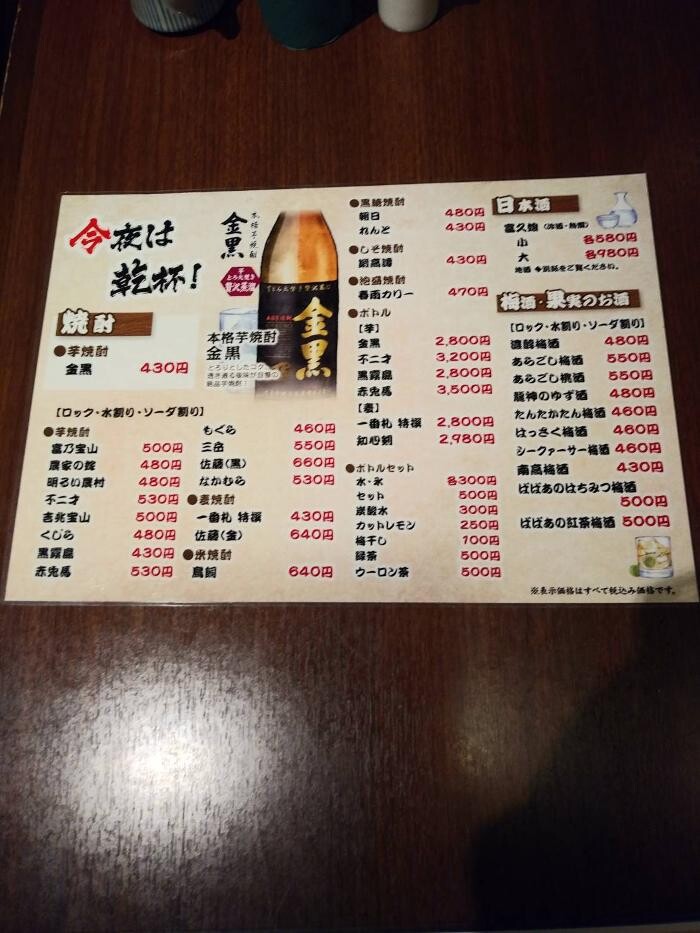 今夜は
乾杯!
金黒
本格芋焼酎
芋
とろ火焼き
贅沢蒸溜
金黒
本格芋焼酎
金黒
とろりとしたコク、
透き通る後味が自慢の
絶品芋焼酎!
焼酎
●芋焼酎
金黒 430円
【ロック・水割り・ソーダ割り】
●芋焼酎
富乃宝山 500円
農家の錠 480円
明るい農村 480円
不二才 530円
吉兆宝山 500円
くじら 480円
黒霧島 430円
赤兎馬 530円
もぐら 460円
三岳 550円
佐藤(黒) 660円
なかむら 530円
●麦焼酎
一番札 特撰 430円
佐藤(金) 640円
●米焼酎
鳥飼 640円
●黒糖焼酎
朝日 480円
れんと 430円
●しそ焼酎
鍛高譚 430円
●泡盛焼酎
春雨カリー 470円
●ボトル
【芋】
金黒 2,800円
不二才 3,200円
黒霧島 2,800円
赤兎馬 3,500円
【麦】
一番札 特撰 2,800円
知心剣 2,980円
●ボトルセット
水・氷 各300円
セット 500円
炭酸水 300円
カットレモン 250円
梅干し 100円
緑茶 500円
ウーロン茶 500円
日本酒
富久娘(冷酒・熱燗)
小 各580円
大 各980円
地酒 ◆別紙をご覧ください。
梅酒・果実のお酒
【ロック・水割り・ソーダ割り】
濃醇梅酒 480円
あらごし梅酒 550円
あらごし桃酒 550円
龍神のゆず酒 480円
たんたかたん梅酒 460円
はっさく梅酒 460円
シークァーサー梅酒 460円
南高梅酒 430円
ばばあのはちみつ梅酒
500円
ばばあの紅茶梅酒 500円
※表示価格はすべて税込み価格です。